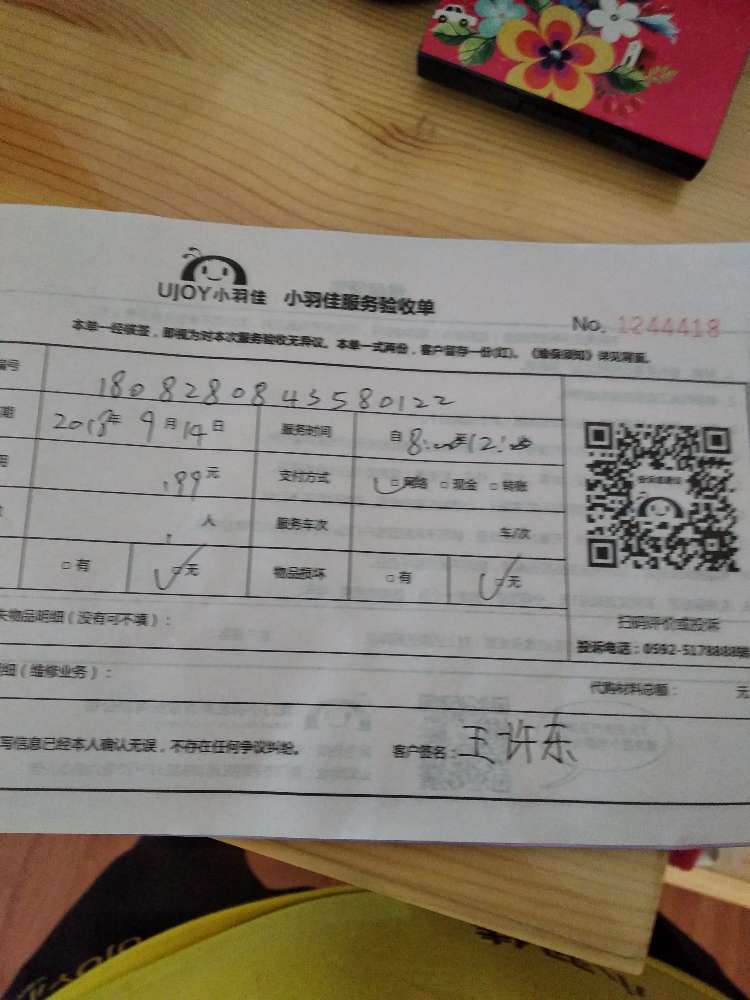 UJOY小羽佳 小羽佳服务验收单
No. 1244418
本单一经核签，即视为对本次服务验收无异议。本单一式两份，客户留存一份(红)。《维保须知》详见背面。
编号 180828084358 0122
期 2018年 9月14日 服务时间 自 8:00至12:00
199元 支付方式 □网络 □现金 □转账
人 服务车次 车/次
□有 □无 物品损坏 □有 □无
失物品明细（没有可不填）：
扫码评价或投诉
投诉电话：0592-5178888转
明细（维修业务）：
代购材料总额： 元
写信息已经本人确认无误，不存在任何争议纠纷。 客户签名：王许东